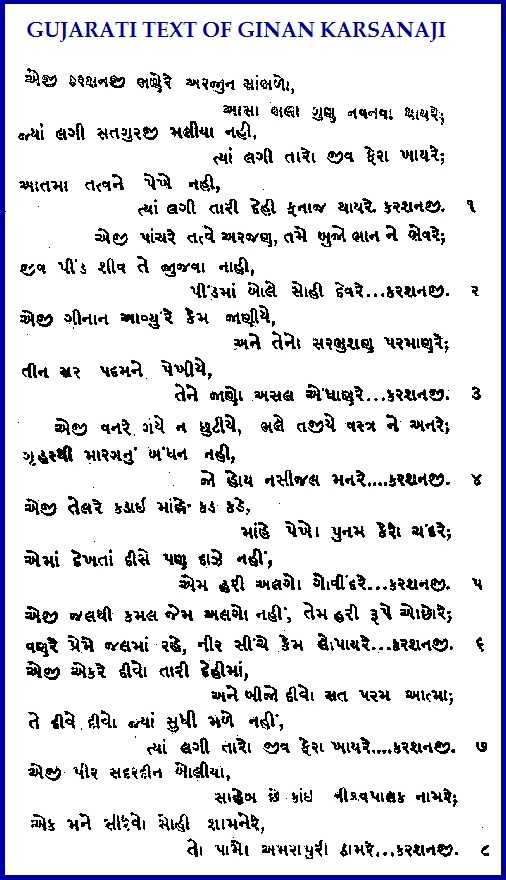 GUJARATI TEXT OF GINAN KARSANAJI
એજી કરશનજી ભણેરે અરજુન સાંભળો,
આસા ભલા ગુણ નવનવા થાયરે;
જ્યાં લગી સતગુરજી મલીયા નહી,
ત્યાં લગી તારો જીવ ફેરા ખાયરે;
આતમા તત્વને પેખે નહી,
ત્યાં લગી તારી દેહી ફનાજ થાયરે. કરશનજી. ૧
એજી પાંચરે તત્વે અરજણ, તમે બુજો ભાન ને ભેવરે;
જીવ પીંડ શીવ તે જુજવા નાહી,
પીંડમાં બોલે સોહી દેવરે...કરશનજી. ૨
એજી ગીનાન આવ્યુંરે કેમ જાણીયે,
અને તેનો સરભુશણ પરમાણરે;
તીન સર પદમને પેખીયે,
તેને જાણો અસલ એંધાણરે...કરશનજી. ૩
એજી વનરે ગયે ન છુટીયે, ભલે તજીયે વસ્ત્ર ને અનરે;
ગૃહસ્થી મારગનું બંધન નહી,
જો હોય નસીજલ મનરે....કરશનજી. ૪
એજી તેલરે કડાઇ માંહે કડ કડે,
માંહે પેખો પુનમ કેરો ચંદરે;
એમાં દેખતાં દીસે પણ દાઝે નહીં,
એમ હરી અલગો ગોવીંદરે...કરશનજી. ૫
એજી જલથી કમલ જેમ અલગો નહીં, તેમ હરી રૂપે ઓછોરે;
વણરે પ્રેમે જલમાં રહે, નીર સીંચે કેમ લેાપાયરે...કરશનજી. ૬
એજી એકરે દીવો તારી દેહીમાં,
અને બીજો દીવો સત પરમ આત્મા;
તે દીવે દીવો જ્યાં સુધી મળે નહીં,
ત્યાં લગી તારો જીવ ફેરા ખાયરે....કરશનજી. ૭
એજી પીર સદરદીન બોલીયા,
સાહેબ છે કાંઇ વીશ્વપાલક નામરે;
એક મને સીરેવો સોહી શામનેરે,
તો પામો અમરાપુરી ઠામરે...કરશનજી. ૮